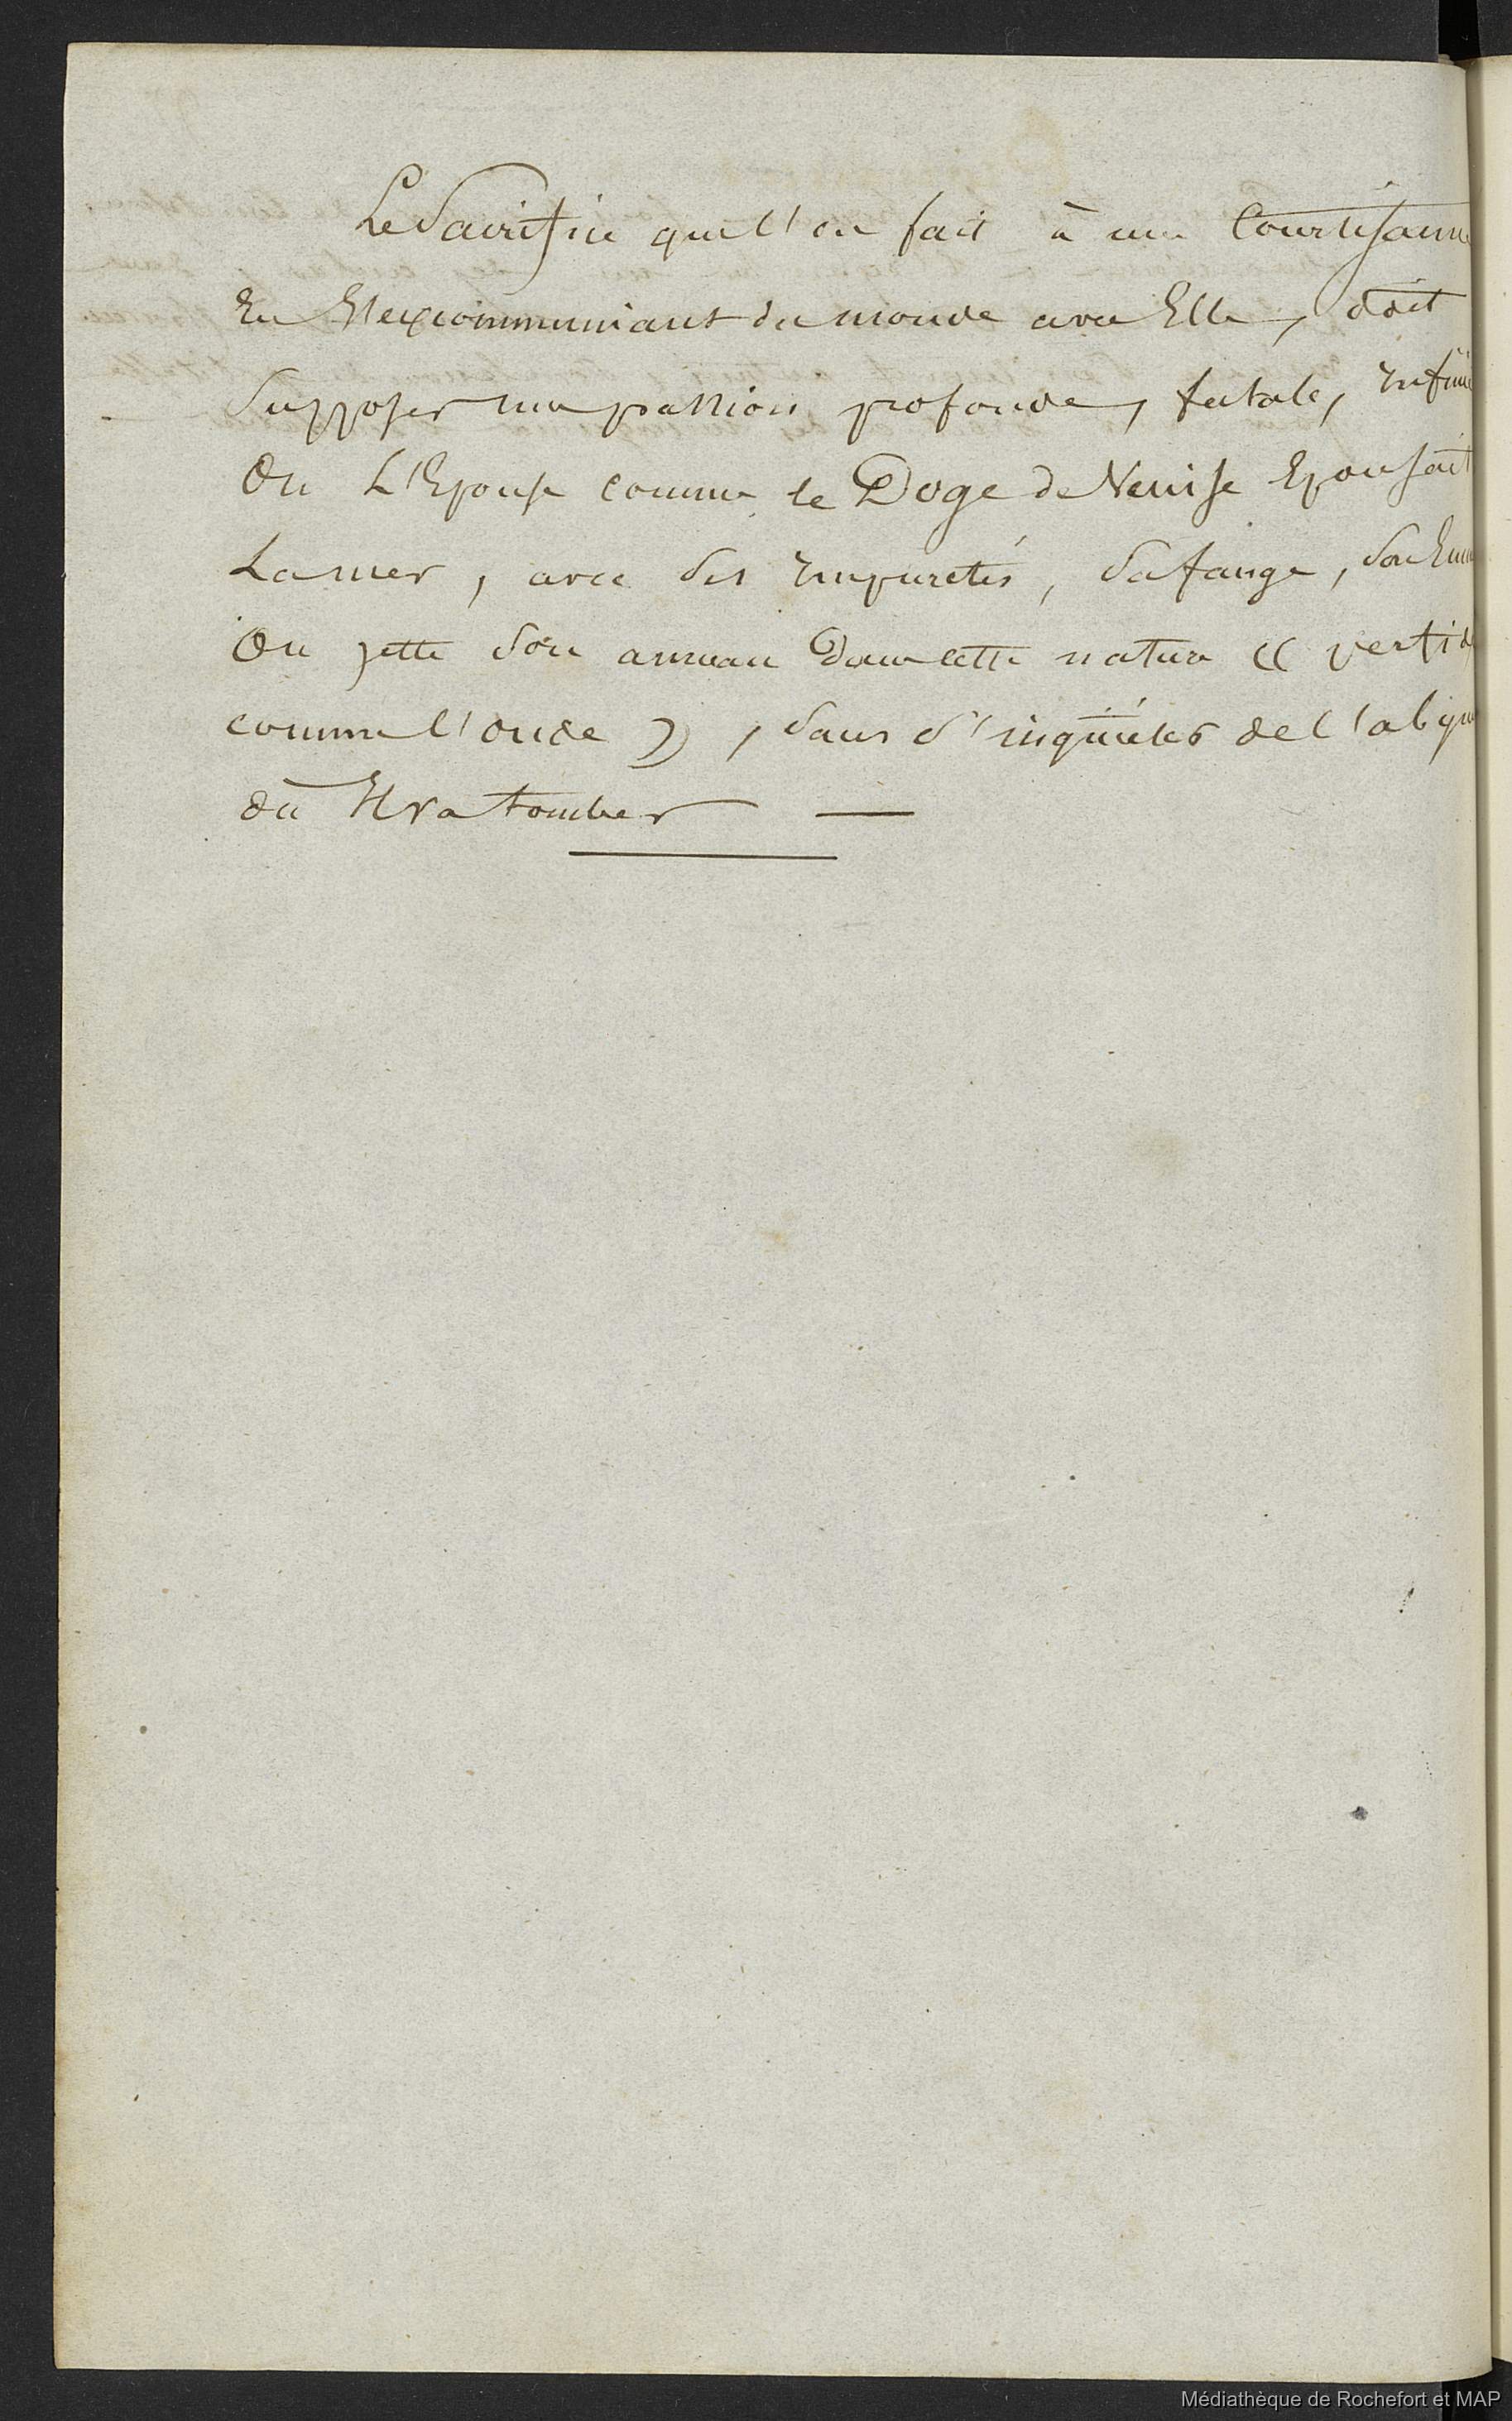 Le Sacrifice que l'on fait à une Courtisanne
En s'excommuniant du monde avec Elle, doit
Supposer une passion profonde, fatale, infinie
On L'Epouse comme le Doge de Venise Epousait
La mer, avec ses impuretés, sa fange, son
On jette son anneau dans cette nature « perfide
comme l'onde », sans s'inquiéter de l'abyme
où Il va tomber —
Médiathèque de Rochefort et MAP